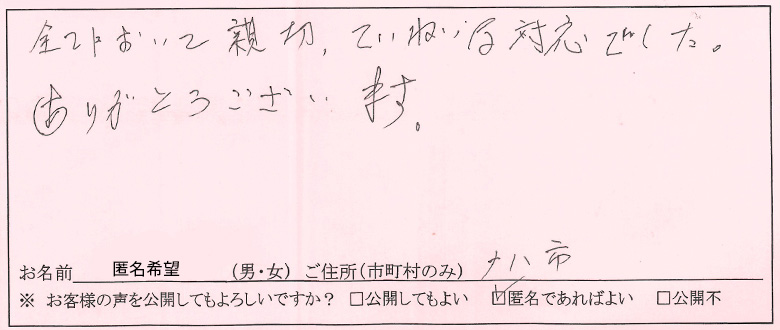 全てにおいて親切、ていねいな対応でした。
ありがとうございます。
お名前 匿名希望 (男・女) ご住所(市町村のみ) ナハ市
※ お客様の声を公開してもよろしいですか? □公開してもよい ☑匿名であればよい □公開不